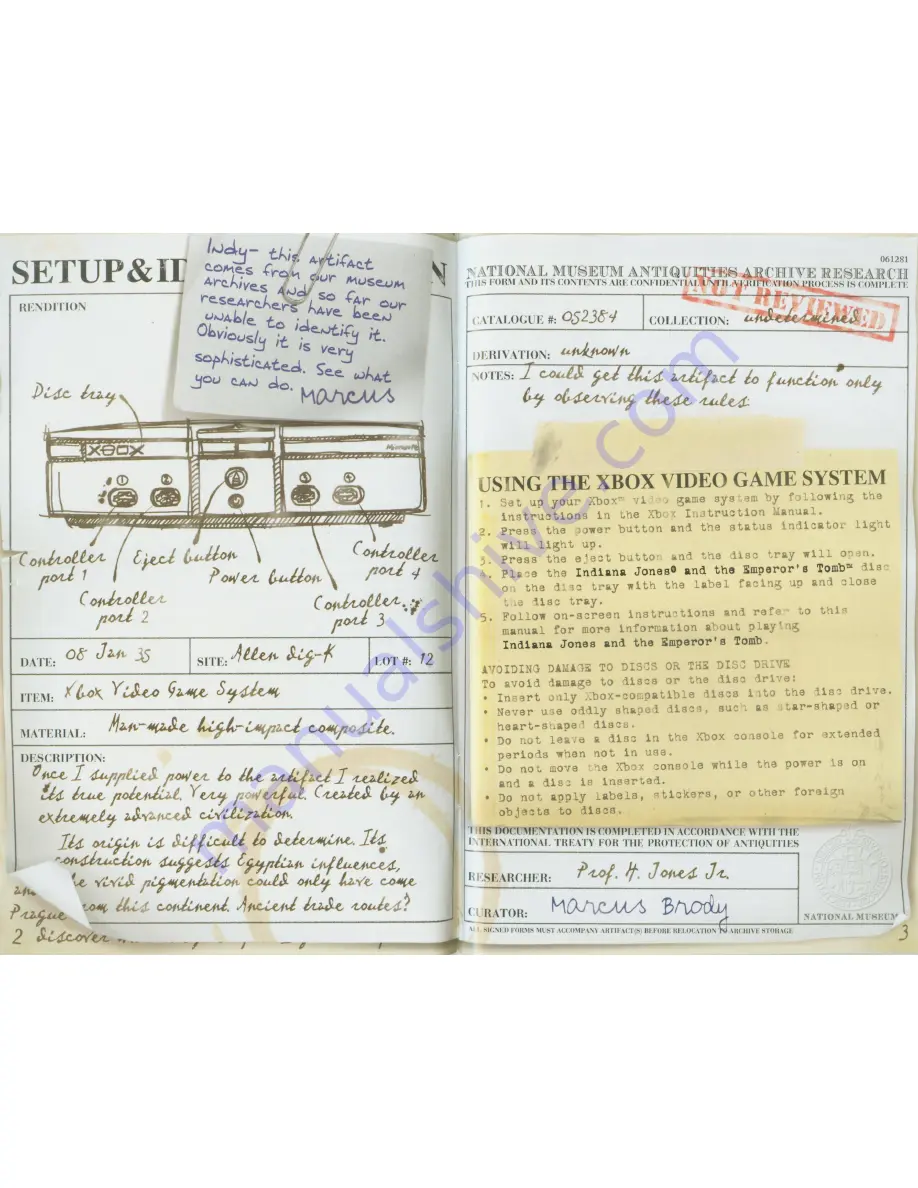 SETUP & ID N
Indy- this artifact
comes from our museum
archives and so far our
researchers have been
unable to identify it.
Obviously it is very
sophisticated. See what
you can do. Marcus
RENDITION
Disc tray
XBOX
Microsoft
1 2 3 4
Controller
port 1
Eject button
Power button
Controller
port 4
Controller
port 2
Controller
port 3
DATE: 08 Jan 35 SITE: Allen dig-K LOT #: 12
ITEM: Xbox Video Game System
MATERIAL: Man-made high-impact composite.
DESCRIPTION:
Once I supplied power to the artifact I realized
its true potential. Very powerful. Created by an
extremely advanced civilization.
Its origin is difficult to determine. Its
construction suggests Egyptian influences,
vivid pigmentation could only have come
Prague from this continent. Ancient trade routes?
2 discover
061281
NATIONAL MUSEUM ANTIQUITIES ARCHIVE RESEARCH
THIS FORM AND ITS CONTENTS ARE CONFIDENTIAL UNTIL VERIFICATION PROCESS IS COMPLETE
NOT REVIEWED
CATALOGUE #: 052384 COLLECTION: undetermined
DERIVATION: unknown
NOTES: I could get this artifact to function only
by observing these rules
USING THE XBOX VIDEO GAME SYSTEM
1. Set up your Xbox™ video game system by following the
instructions in the Xbox Instruction Manual.
2. Press the power button and the status indicator light
will light up.
3. Press the eject button and the disc tray will open.
4. Place the Indiana Jones® and the Emperor's Tomb™ disc
on the disc tray with the label facing up and close
the disc tray.
5. Follow on-screen instructions and refer to this
manual for more information about playing
Indiana Jones and the Emperor's Tomb.
AVOIDING DAMAGE TO DISCS OR THE DISC DRIVE
To avoid damage to discs or the disc drive:
• Insert only Xbox-compatible discs into the disc drive.
• Never use oddly shaped discs, such as star-shaped or
heart-shaped discs.
• Do not leave a disc in the Xbox console for extended
periods when not in use.
• Do not move the Xbox console while the power is on
and a disc is inserted.
• Do not apply labels, stickers, or other foreign
objects to discs.
THIS DOCUMENTATION IS COMPLETED IN ACCORDANCE WITH THE
INTERNATIONAL TREATY FOR THE PROTECTION OF ANTIQUITIES
RESEARCHER: Prof. H. Jones Jr.
CURATOR: Marcus Brody
NATIONAL MUSEUM
ALL SIGNED FORMS MUST ACCOMPANY ARTIFACT(S) BEFORE RELOCATION TO ARCHIVE STORAGE
3
manualshive.com